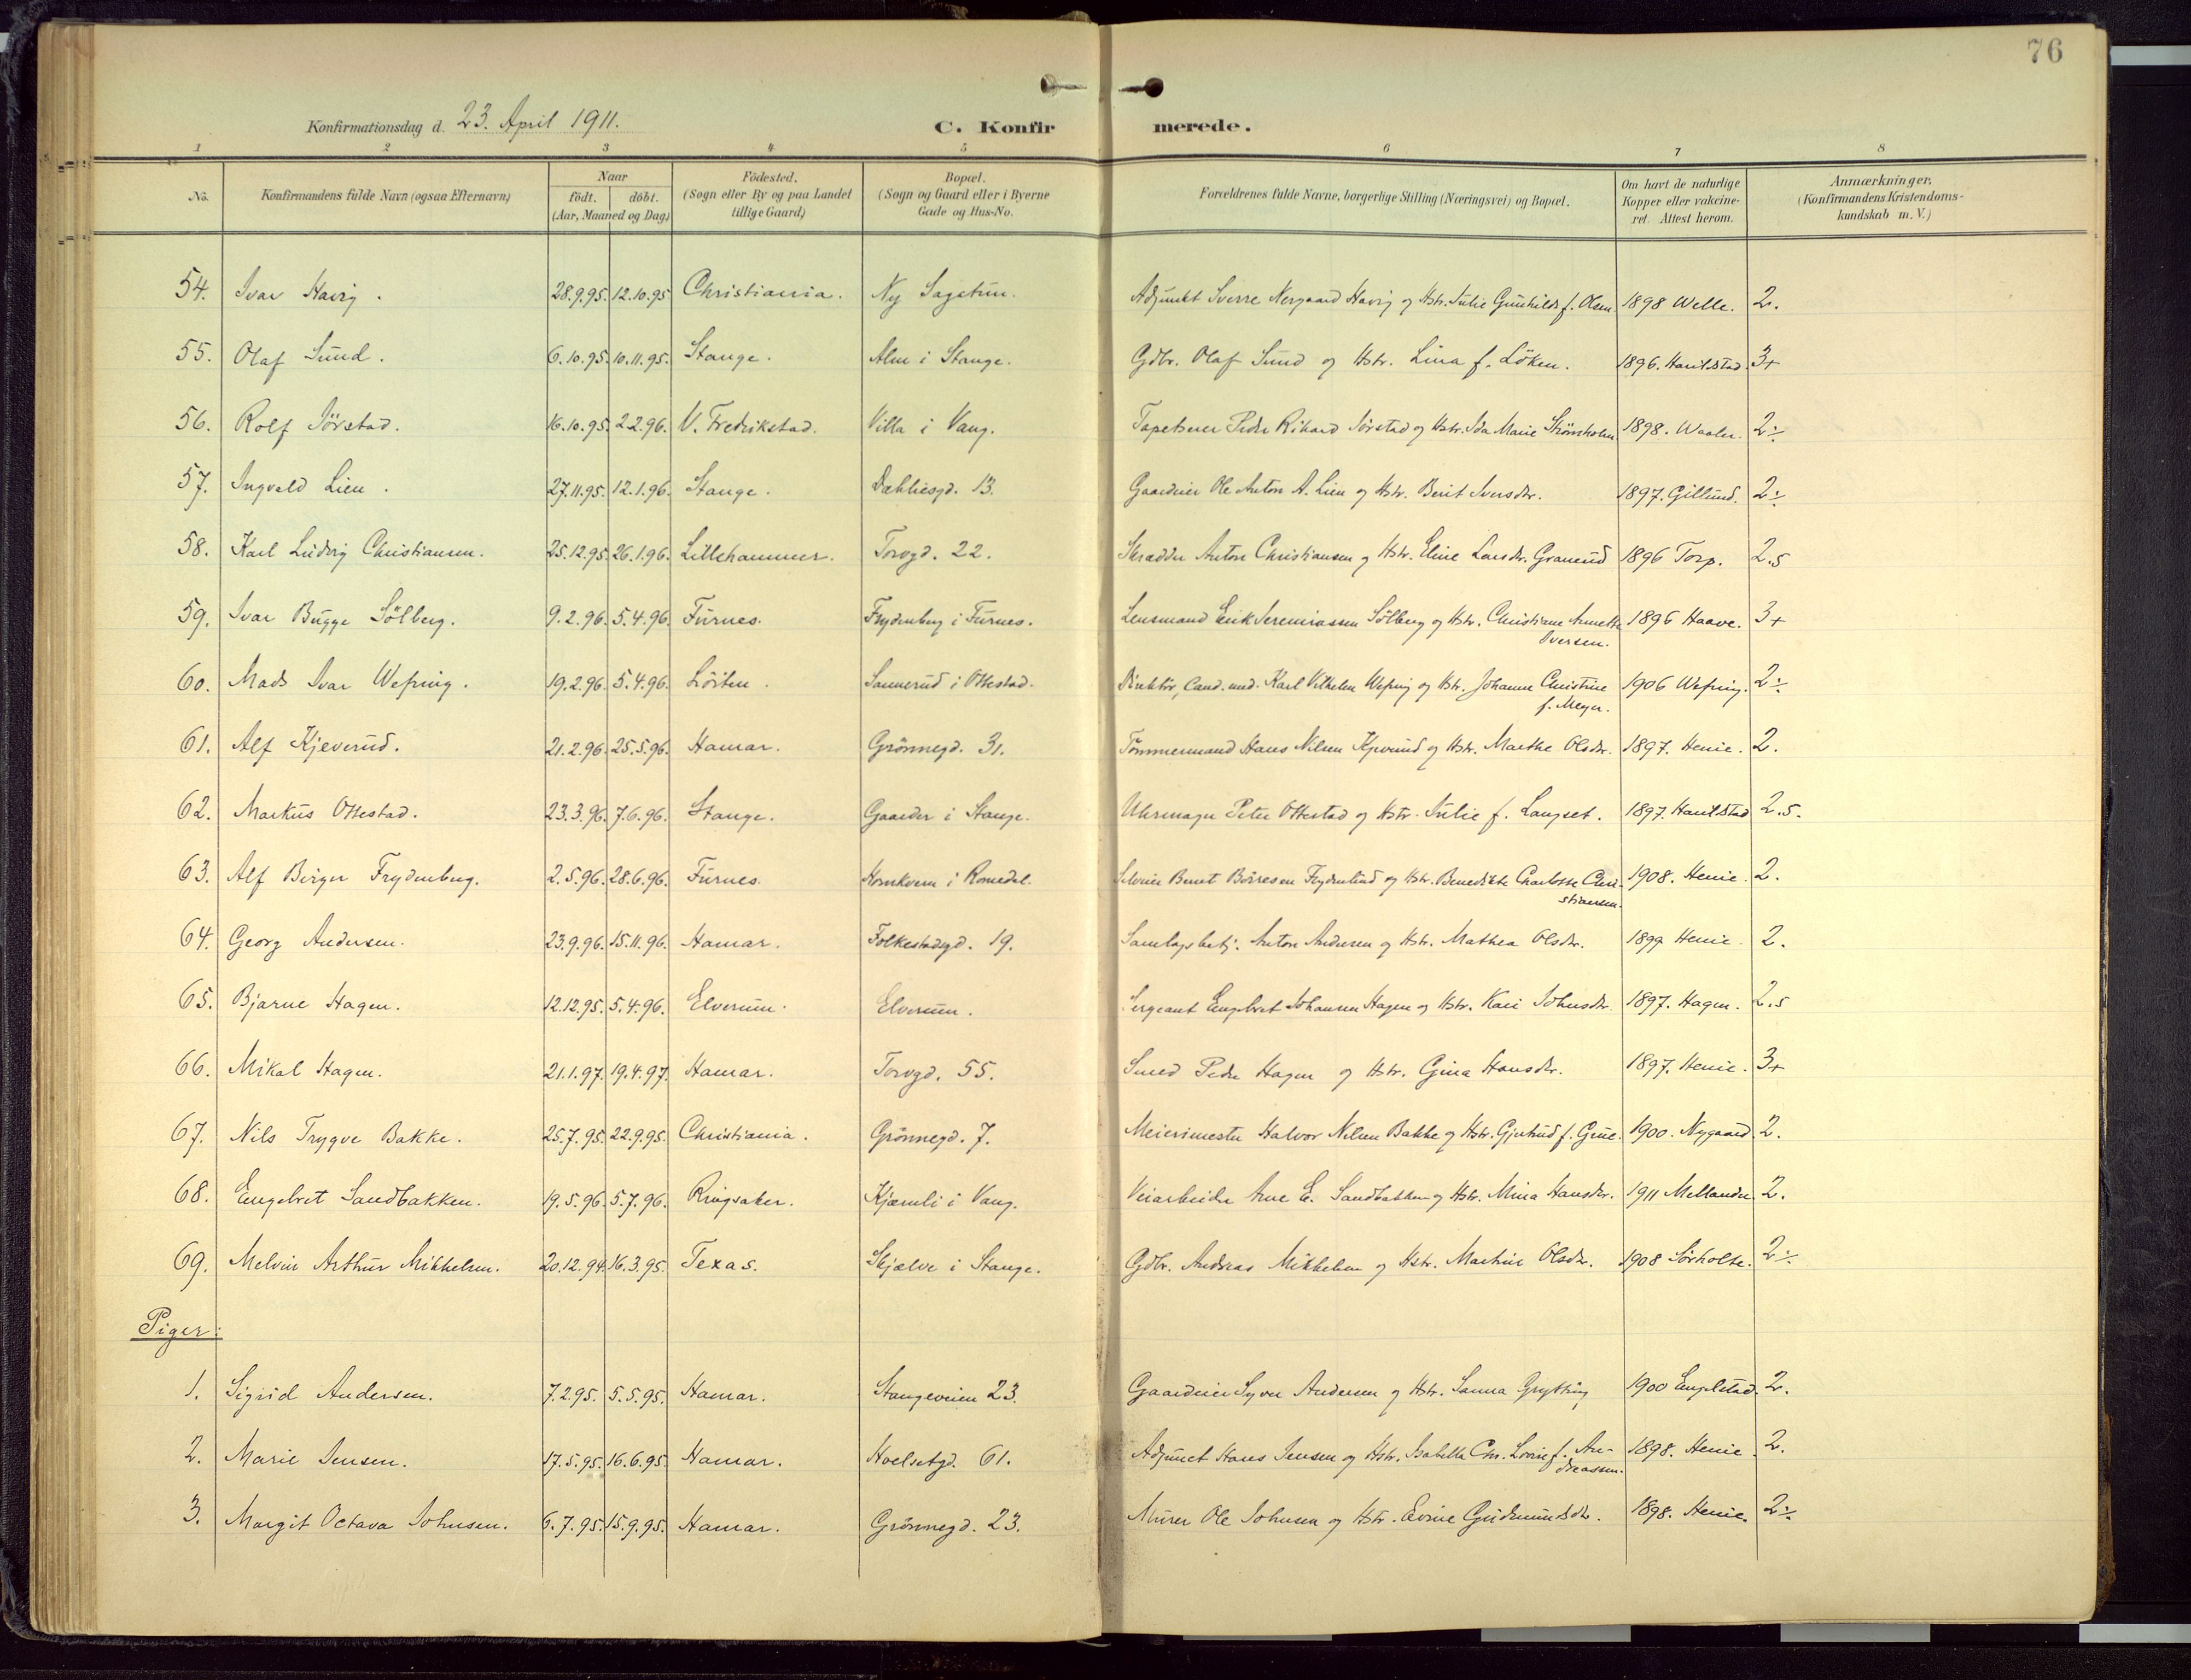 76
Konfirmationsdag d. 23. April 1911. C. Konfirmerede.
1 2 3 4 5 6 7 8
No. Konfirmandens fulde Navn (ogsaa Efternavn) Naar födt. döbt. (Aar, Maaned og Dag) Födested. (Sogn eller By og paa Landet tillige Gaard) Bopæl. (Sogn og Gaard eller i Byerne Gade og Hus-No. Forældrenes fulde Navne, borgerlige Stilling (Næringsvei) og Bopæl. Om havt de naturlige Kopper eller vakcineret. Attest herom. Anmærkninger. (Konfirmandens Kristendomskundskab m. V.)
54. Ivar Havig. 28.9.95. 12.10.95 Christiania. Ny Sagatun. Adjunkt Sverre Nergaard Havig og Hstr. Julie Gunhilds f. Olsen 1898 Welle. 2.
55. Olaf Sund. 6.10.95. 10.11.95. Stange. Alm i Stange. Gdbr. Olaf Sund og Hstr. Lina f. Löken. 1896. 3+
56. Rolf Sörstad. 16.10.95. 2.2.96. V. Fredrikstad. Villa i Vang. Tapetserer Peder Rikard Sörstad og Hstr. Ida Marie Strömsholm 1898. Waaler. 2÷
57. Ingvald Lien. 27.11.95. 12.1.96. Stange. Dæhliesgd. 13. Gaardeier Ole Anton A. Lien og Hstr. Berit Iversdr. 1897. Gillund. 2÷
58. Karl Ludvig Christiansen. 25.12.95. 26.1.96. Lillehammer. Torvgd. 22. Skrædder Anton Christiansen og Hstr. Eline Larsdr. Granerud 1896 Torp. 2.5
59. Ivar Bugge Sölberg. 9.2.96. 5.4.96. Furnes. Frydenberg i Furnes. Lensmand Erik Jeremiassen Sölberg og Hstr. Christiane Annette Iversen. 1896 Haave. 3+
60. Mads Ivar Wefring. 19.2.96. 5.4.96. Löiten. Sannerud i Ottestad. Direktör, Cand. med. Karl Vilhelm Wefring og Hstr. Johanne Christine f. Meyer. 1906 Wefring. 2÷
61. Alf Kjeverud. 21.2.96. 25.5.96. Hamar. Grönnegd. 31. Tömmermand Hans Nilsen Kjeverud og Hstr. Marthe Olsdr. 1897. Henie. 2.
62. Markus Ottestad. 23.3.96. 7.6.96. Stange. Gaarder i Stange. Uhrmager Peter Ottestad og Hstr. Julie f. Langset. 1897. 2.5.
63. Alf Birger Frydenberg. 2.5.96. 28.6.96. Furnes. i Romedal. Selveier Bernt Börresen Frydenlund og Hstr. Benedikte Charlotte Christiansen. 1908. Henie. 2.
64. Georg Andersen. 23.9.96. 15.11.96. Hamar. Folkestadgd. 19. Samlagsbetj. Anton Andersen og Hstr. Mathea Olsdr. 1899 Henie. 2.
65. Bjarne Hagen. 12.12.95. 5.4.96. Elverum. Elverum. Sergeant Engebret Johansen Hagen og Hstr. Kari Johnsdr. 1897. Hagen. 2.5
66. Mikal Hagen. 21.1.97. 19.4.97. Hamar. Torvgd. 55. Smed Peder Hagen og Hstr. Gina Hansdr. 1897. Henie. 3+
67. Nils Trygve Bakke. 25.7.95. 22.9.95. Christiania. Grönnegd. 7. Meierimester Halvor Nilsen Bakke og Hstr. Gjertrud f. Grue. 1900. Nygaard. 2.
68. Engebret Sandbakken. 19.5.96. 5.7.96. Ringsaker. Kjæmli i Vang. Veiarbeider Arne E. Sandbakken og Hstr. Mina Hansdr. 1911 Mellander. 2.
69. Melvin Arthur Mikkelsen. 20.12.94. 16.3.95. Texas. Skjælve i Stange. Gdbr. Andreas Mikkelsen og Hstr. Martine Olsdr. 1908 Sörholte. 2÷
Piger:
1. Sigrid Andersen. 7.2.95. 5.5.95. Hamar. Stangeveien 23. Gaardeier Syver Andersen og Hstr. Sanna Grytting 1900 Engelstad. 2.
2. Marie Jensen. 17.5.95. 16.6.95. Hamar. Hoelsetgd. 61. Adjunct Hans Jensen og Hstr. Isabella Chr. Lovine f. Andreassen. 1898. Henie. 2.
3. Margit Octava Johnsen. 6.7.95. 15.9.95. Hamar. Grönnegd. 23. Murer Ole Johnsen og Hstr. Evine Gudmundsdr. 1898. Henie. 2÷